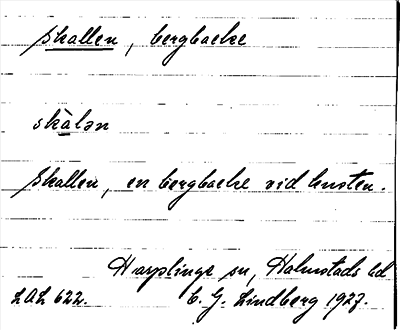 Skallen, bergbacke
skàlən
Skallen, en bergbacke vid kusten.
Harplinge sn, Halmstads hd
LAL 622. C. G. Lindberg 1927.